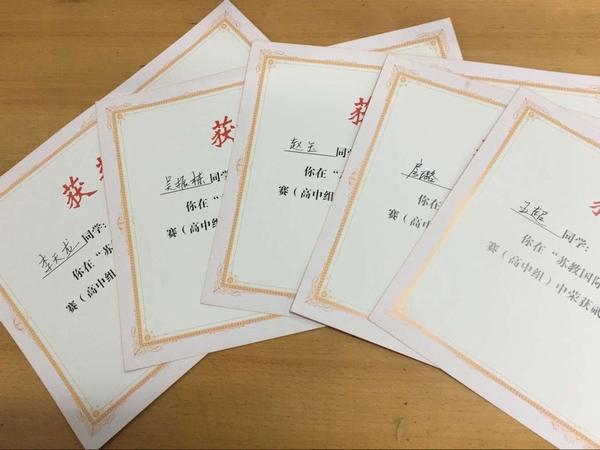 获
李天龙 同学:
你在“
赛（高中组）
获
吴振栋 同学
你在“
赛（高中组）
获
赵 同学
你在“
赛（高中组
同学
你在“
赛（高中
王超 同学:
你在“苏教国际
赛（高中组）中荣获贰